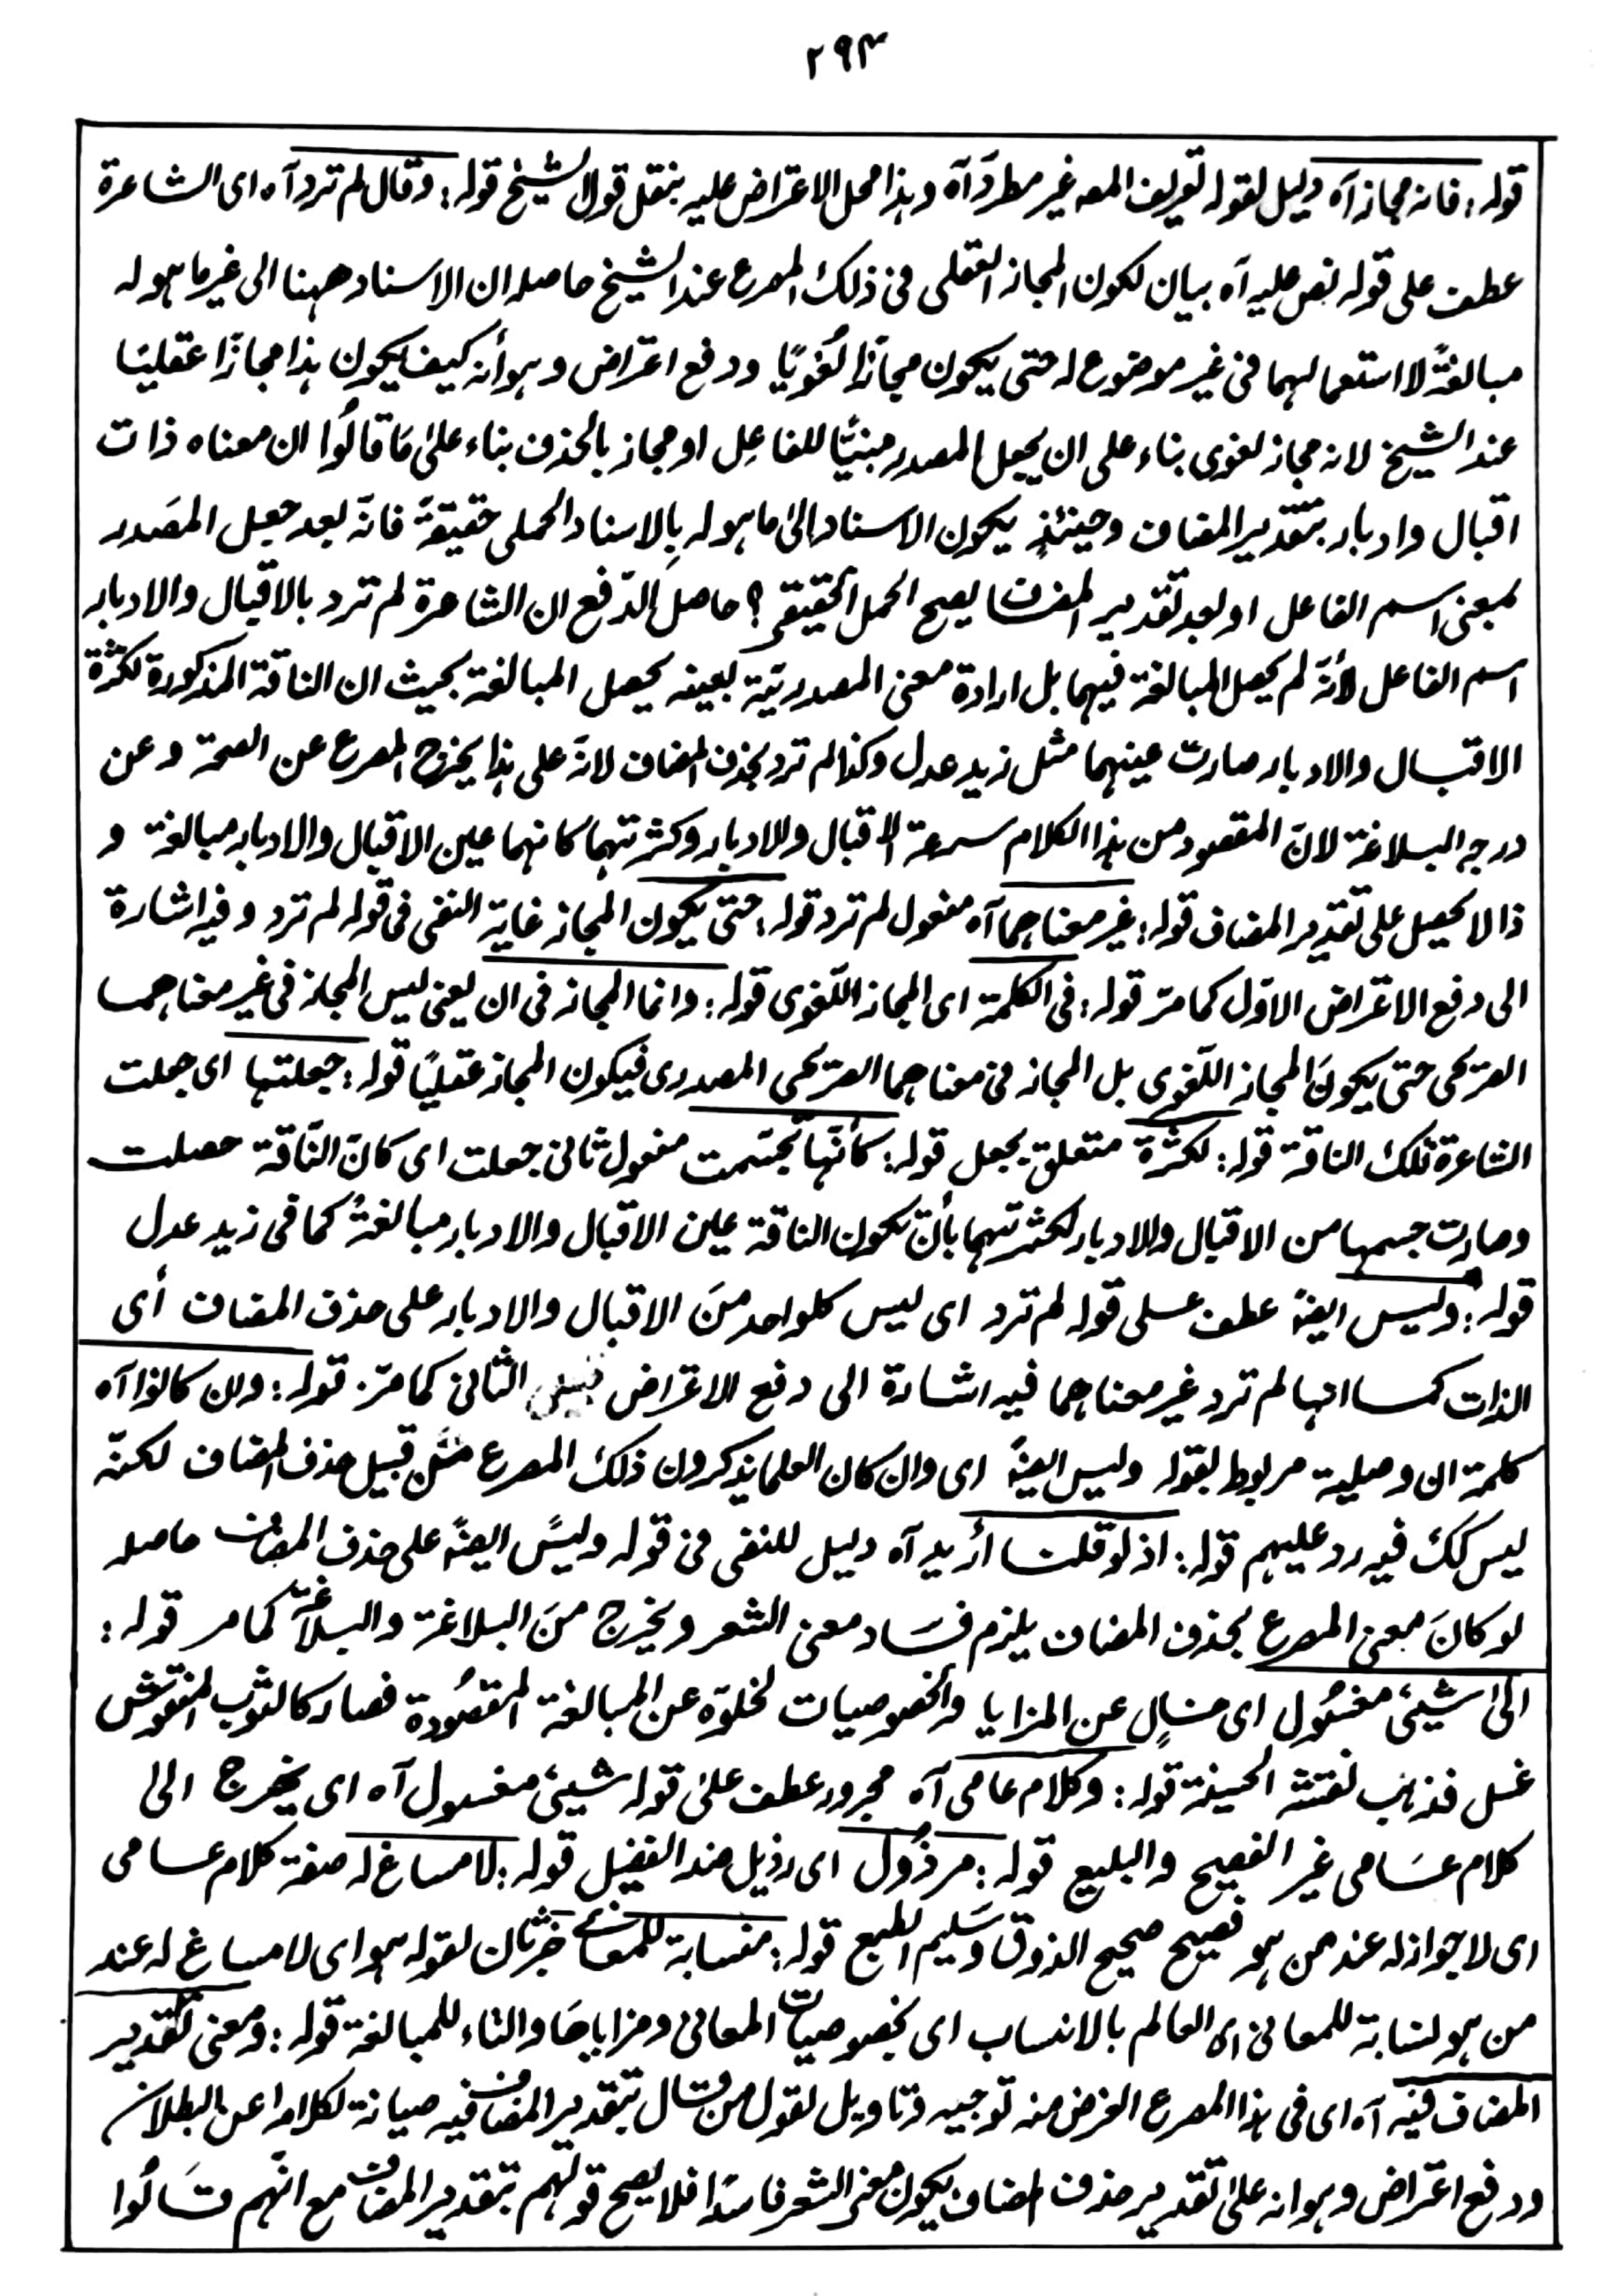 ۲۹۴
قوله: فانه مجاز آه دليل لقوله تعريف المصه غير مطرد آه وهذا محل الاعتراض عليه بنقل قول الشيخ قوله: وقال لم ترد آه اى الشاعرة
عطف على قوله نص عليه آه بيان لكون المجاز العقلى فى ذلك المصرع عند الشيخ حاصله ان الاسناد ههنا الى غير ما هو له
مبالغةً لا استعمالهما فى غير موضوع له حتى يكون مجازًا لُغويًا ودفع اعتراض وهو أنه كيف يكون هذا مجازًا عقليًا
عند الشيخ لانه مجاز لغوى بناء على ان يجعل المصدر مبنيًّا للفاعِل او مجاز بالحذف بناء علىٰ مَا قالُوا ان معناه ذات
اقبال وادبار بتقدير المضاف وحينئذٍ يكون الاسناد الىٰ ما هو له بِالاسناد الحملى حقيقةً فانّه بعد جعل المصَدر
بمعنى اسم الفاعل او بعد تقدير المضاف يصح الحمل الحقيقى؟ حاصل الدّفع ان الشاعرة لم ترد بالاقبال والادبار
اسم الفاعل لأنّه لم يحصل المبالغة فيهما بل ارادة معنى المصدريّة بعينه يحصل المبالغة بحيث ان الناقة المذكورة لكثرة
الاقبال والادبار صارت عينهما مثل زيد عدل وكذا لم ترد بحذف المضاف لانّه على هذا يخرج المصرع عن الصحة وعن
درجه البلاغة لانّ المقصود من هذا الكلام سرعة الاقبال والادبار وكثرتهما كانهما عين الاقبال والادبار مبالغة و
ذا لا يحصل على تقدير المضاف قوله: غير معناهما آه مفعول لم ترد قوله: حتى يكون المجاز غاية النفى فى قوله لم ترد وفيه اشارة
الى دفع الاعتراض الاوّل كما مرّ قوله: فى الكلمة اى المجاز اللّغوى قوله: وانما المجاز فى ان يعنى ليس المجاز فى غير معناهما
الصريحى حتى يكونَ المجاز اللّغوى بل المجاز فى معناهما الصريحى المصدرى فيكون المجاز عقليًا قوله: جعلتها اى جعلت
الشاعرة تلك الناقة قوله: لكثرة متعلق بجعل قوله: كأنّها تجسّمت مفعول ثانى جعلت اى كانّ النّاقة حصلت
وصارت جسمها من الاقبال والادبار لكثرتهما بأن تكون الناقة عين الاقبال والادبار مبالغةً كما فى زيد عدل
قوله: وليس ايضًا عطف على قوله لم ترد اى ليس كلواحد منَ الاقبال والادبار على حذف المضاف أى
الذات كما انها لم ترد غير معناهما فيه اشارة الى دفع الاعتراض الثانى كما مرّ. قوله: وان كانوا آه
كلمة ان وصلية مربوط بقوله وليس ايضًا اى وان كان العلما يذكرون ذلك المصرع من قبيل حذف المضاف لكنّه
ليس كك فيه رد عليهم قوله: اذ لو قلنا اُريد آه دليل للنفى فى قوله وليسَ ايضًا على حذف المضاف حاصله
لو كانَ معنى المصرع بحذف المضاف يلزم فسَاد معنى الشعر ويخرج منَ البلاغة والبلاغة كما مر قوله:
الىٰ شيئ مغسُول اى خالٍ عن المزايا والخصوصيات لخلوّه عن المبالغة المقصُودة فصار كالثوب المنقوش
غسل فذهب نقشته الحسينة قوله: وكلام عامى آه مجرور عطف علىٰ قوله شيئ مغسول آه اى يخرج الى
كلام عسَامى غير الفصيح والبليغ قوله: مرذُول اى رذيل ضد الفضيل قوله: لا مساغ له صفة كلام عسامى
اى لا جواز له عند من هو فصيح صحيح الذوق وسَليم الطبع قوله: نسابة للمعانى خبر ثان لقوله هو اى لا مساغ له عند
من هو نسابة للمعانى اى العالم بالانساب اى بخصوصيات المعانى ومزاياهَا والتاء للمبالغة قوله: ومعنى تقدير
المضاف فيه آه اى فى هذا المصرع الغرض منه توجيه وتاويل لقول من قال بتقدير المضاف فيه صيانة لكلامه عن البطلان
ودفع اعتراض وهو انه علىٰ تقدير حذف المضاف يكون معنى الشعر فاسدًا فلا يصح قولهم بتقدير المضاف مع انّهم قالُوا